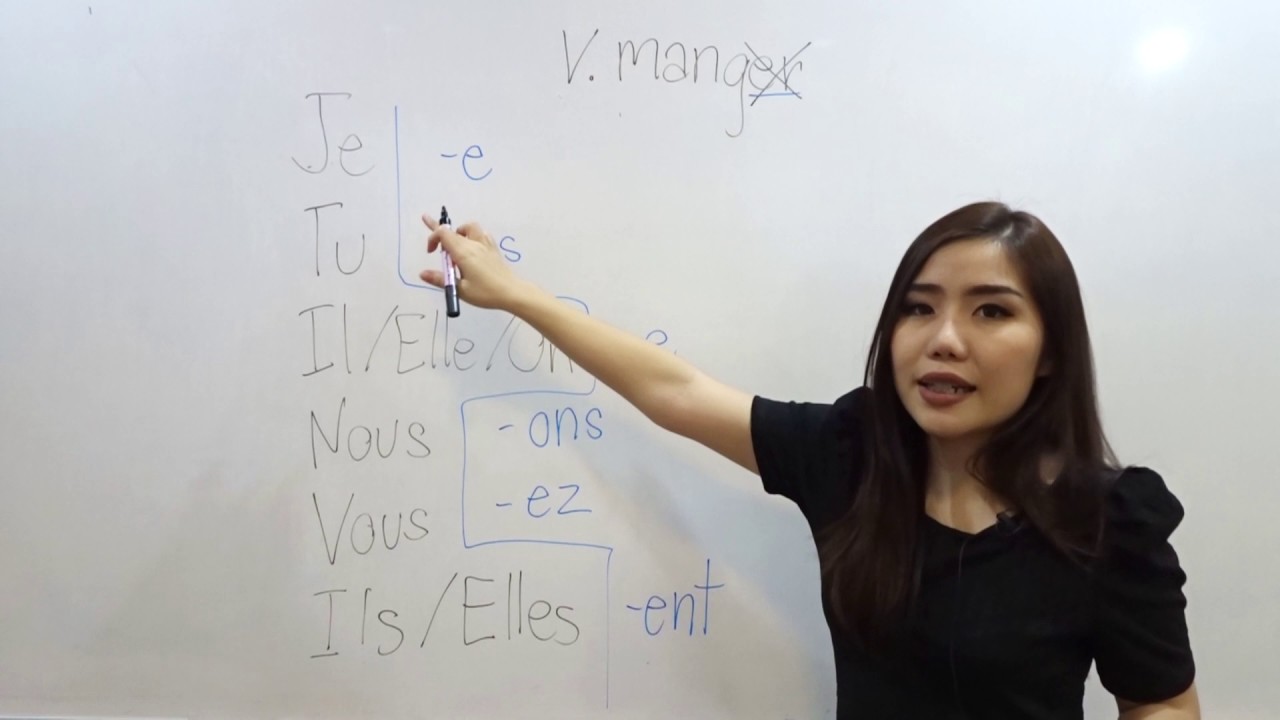 V. manger
Je -e
Tu s
Il/Elle/On e
Nous -ons
Vous -ez
Ils/Elles -ent